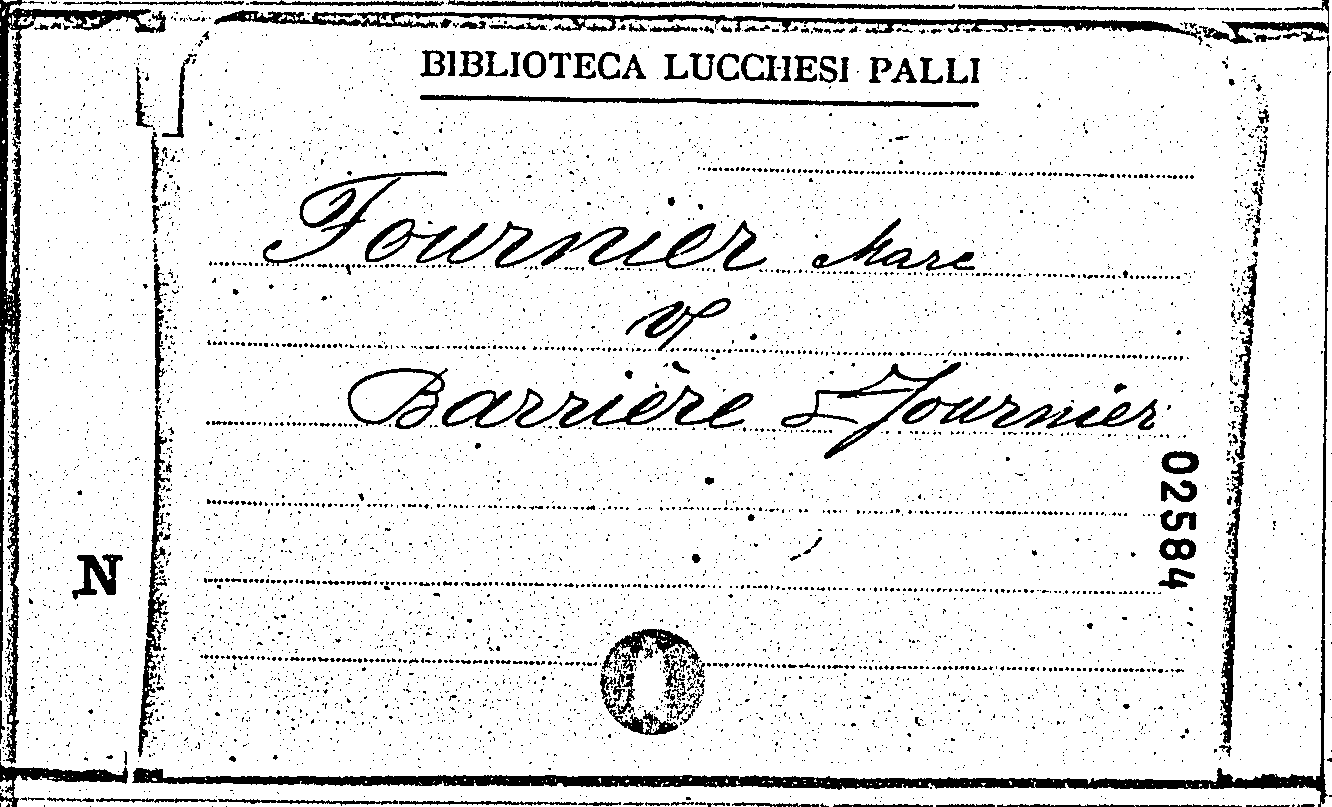 BIBLIOTECA LUCCHESI PALLI
Fournier Marc
V
Barrière & Fournier
02584
N